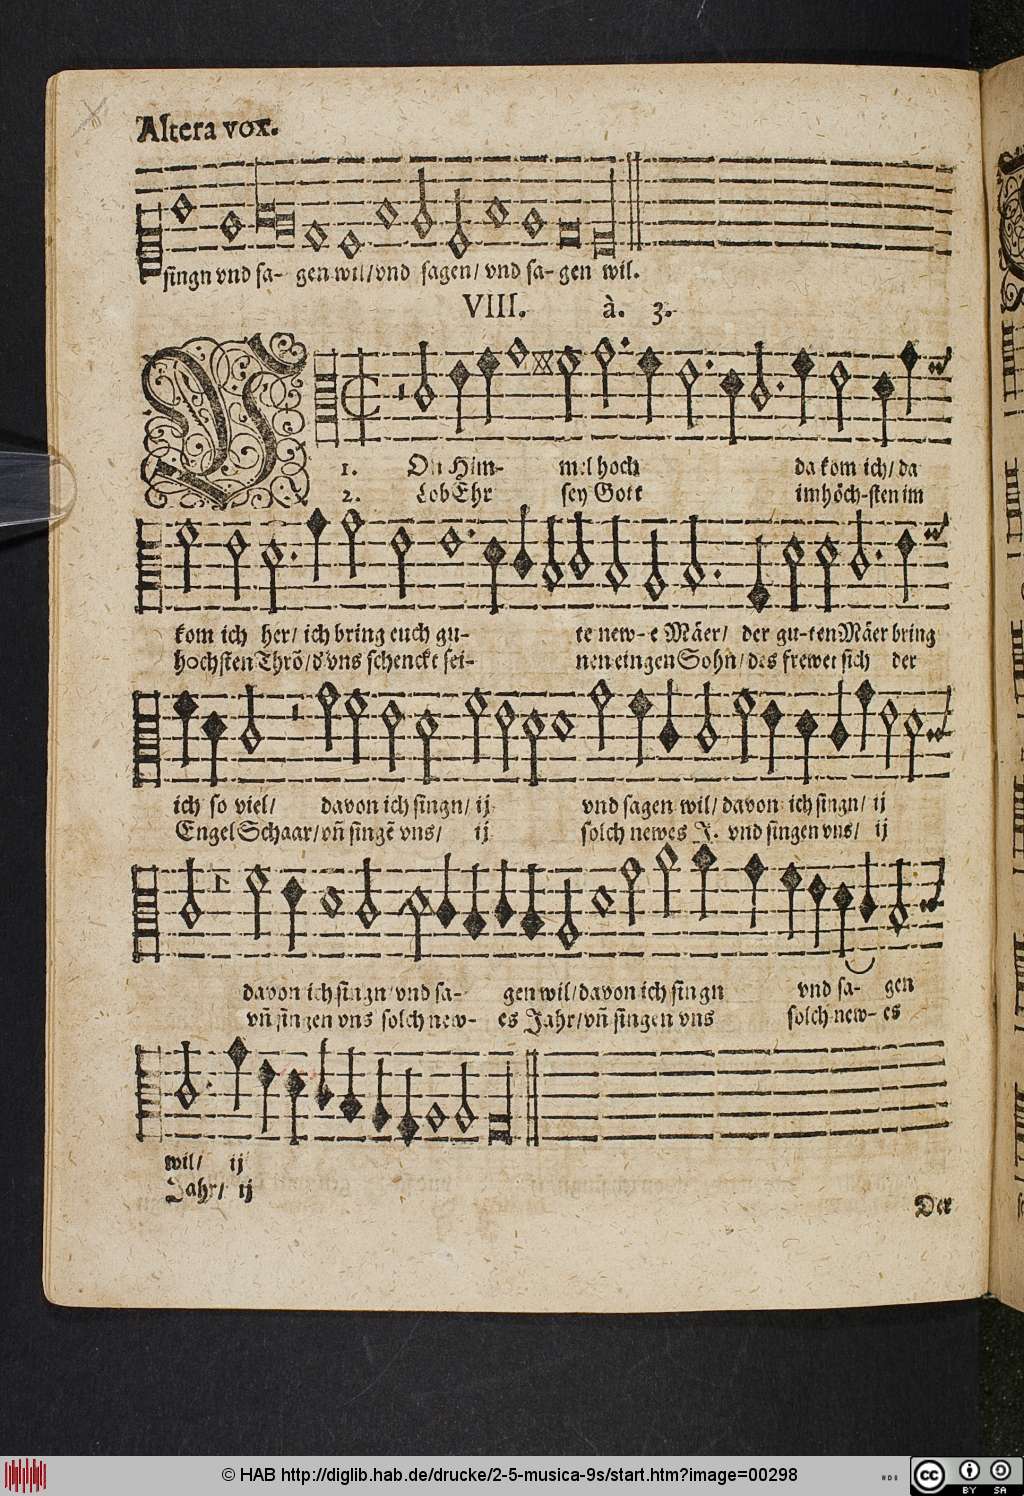 Altera vox.
singn vnd sa- gen wil/vnd sagen/ vnd sa- gen wil.
VIII. à. 3.
1. VOn Him- mel hoch da kom ich/ da
2. Lob Ehr sey Gott im höch-sten im
kom ich her/ ich bring euch gu- te new- e Mäer/ der gu-ten Mäer bring
hochsten Thrō/ d'vns schenckt sei- nen eingen Sohn/ des frewet sich der
ich so viel/ davon ich singn/ ij vnd sagen wil/ davon ich singn/ ij
Engel Schaar/ vñ singē vns/ ij solch newes J. vnd singen vns/ ij
davon ich singn/ vnd sa- gen wil/ davon ich singn vnd sa- gen
vñ singen vns solch new- es Jahr/ vñ singen vns solch new- es
wil/ ij
Jahr/ ij
Der
© HAB http://diglib.hab.de/drucke/2-5-musica-9s/start.htm?image=00298
cc BY SA